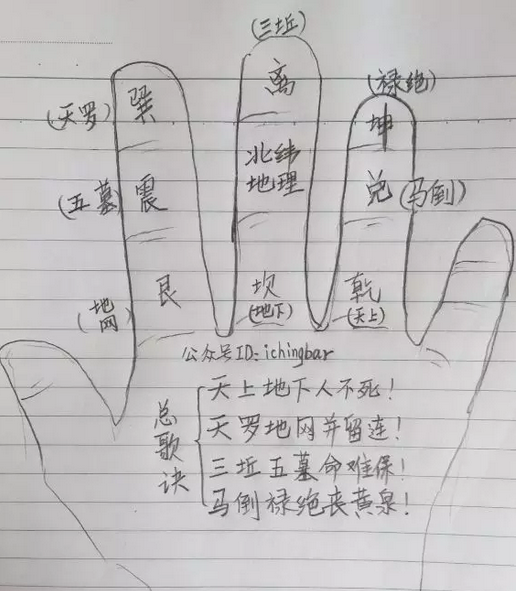 (三坵)
巽
离
(禄绝)
(天罗)
坤
(五墓)
震
北纬
地理
兑
(马倒)
(地网)
艮
坎
(地下)
乾
(天上)
公众号ID:ichingbar
总歌诀
天上地下人不死!
天罗地网并留连!
三坵五墓命难保!
马倒禄绝丧黄泉!